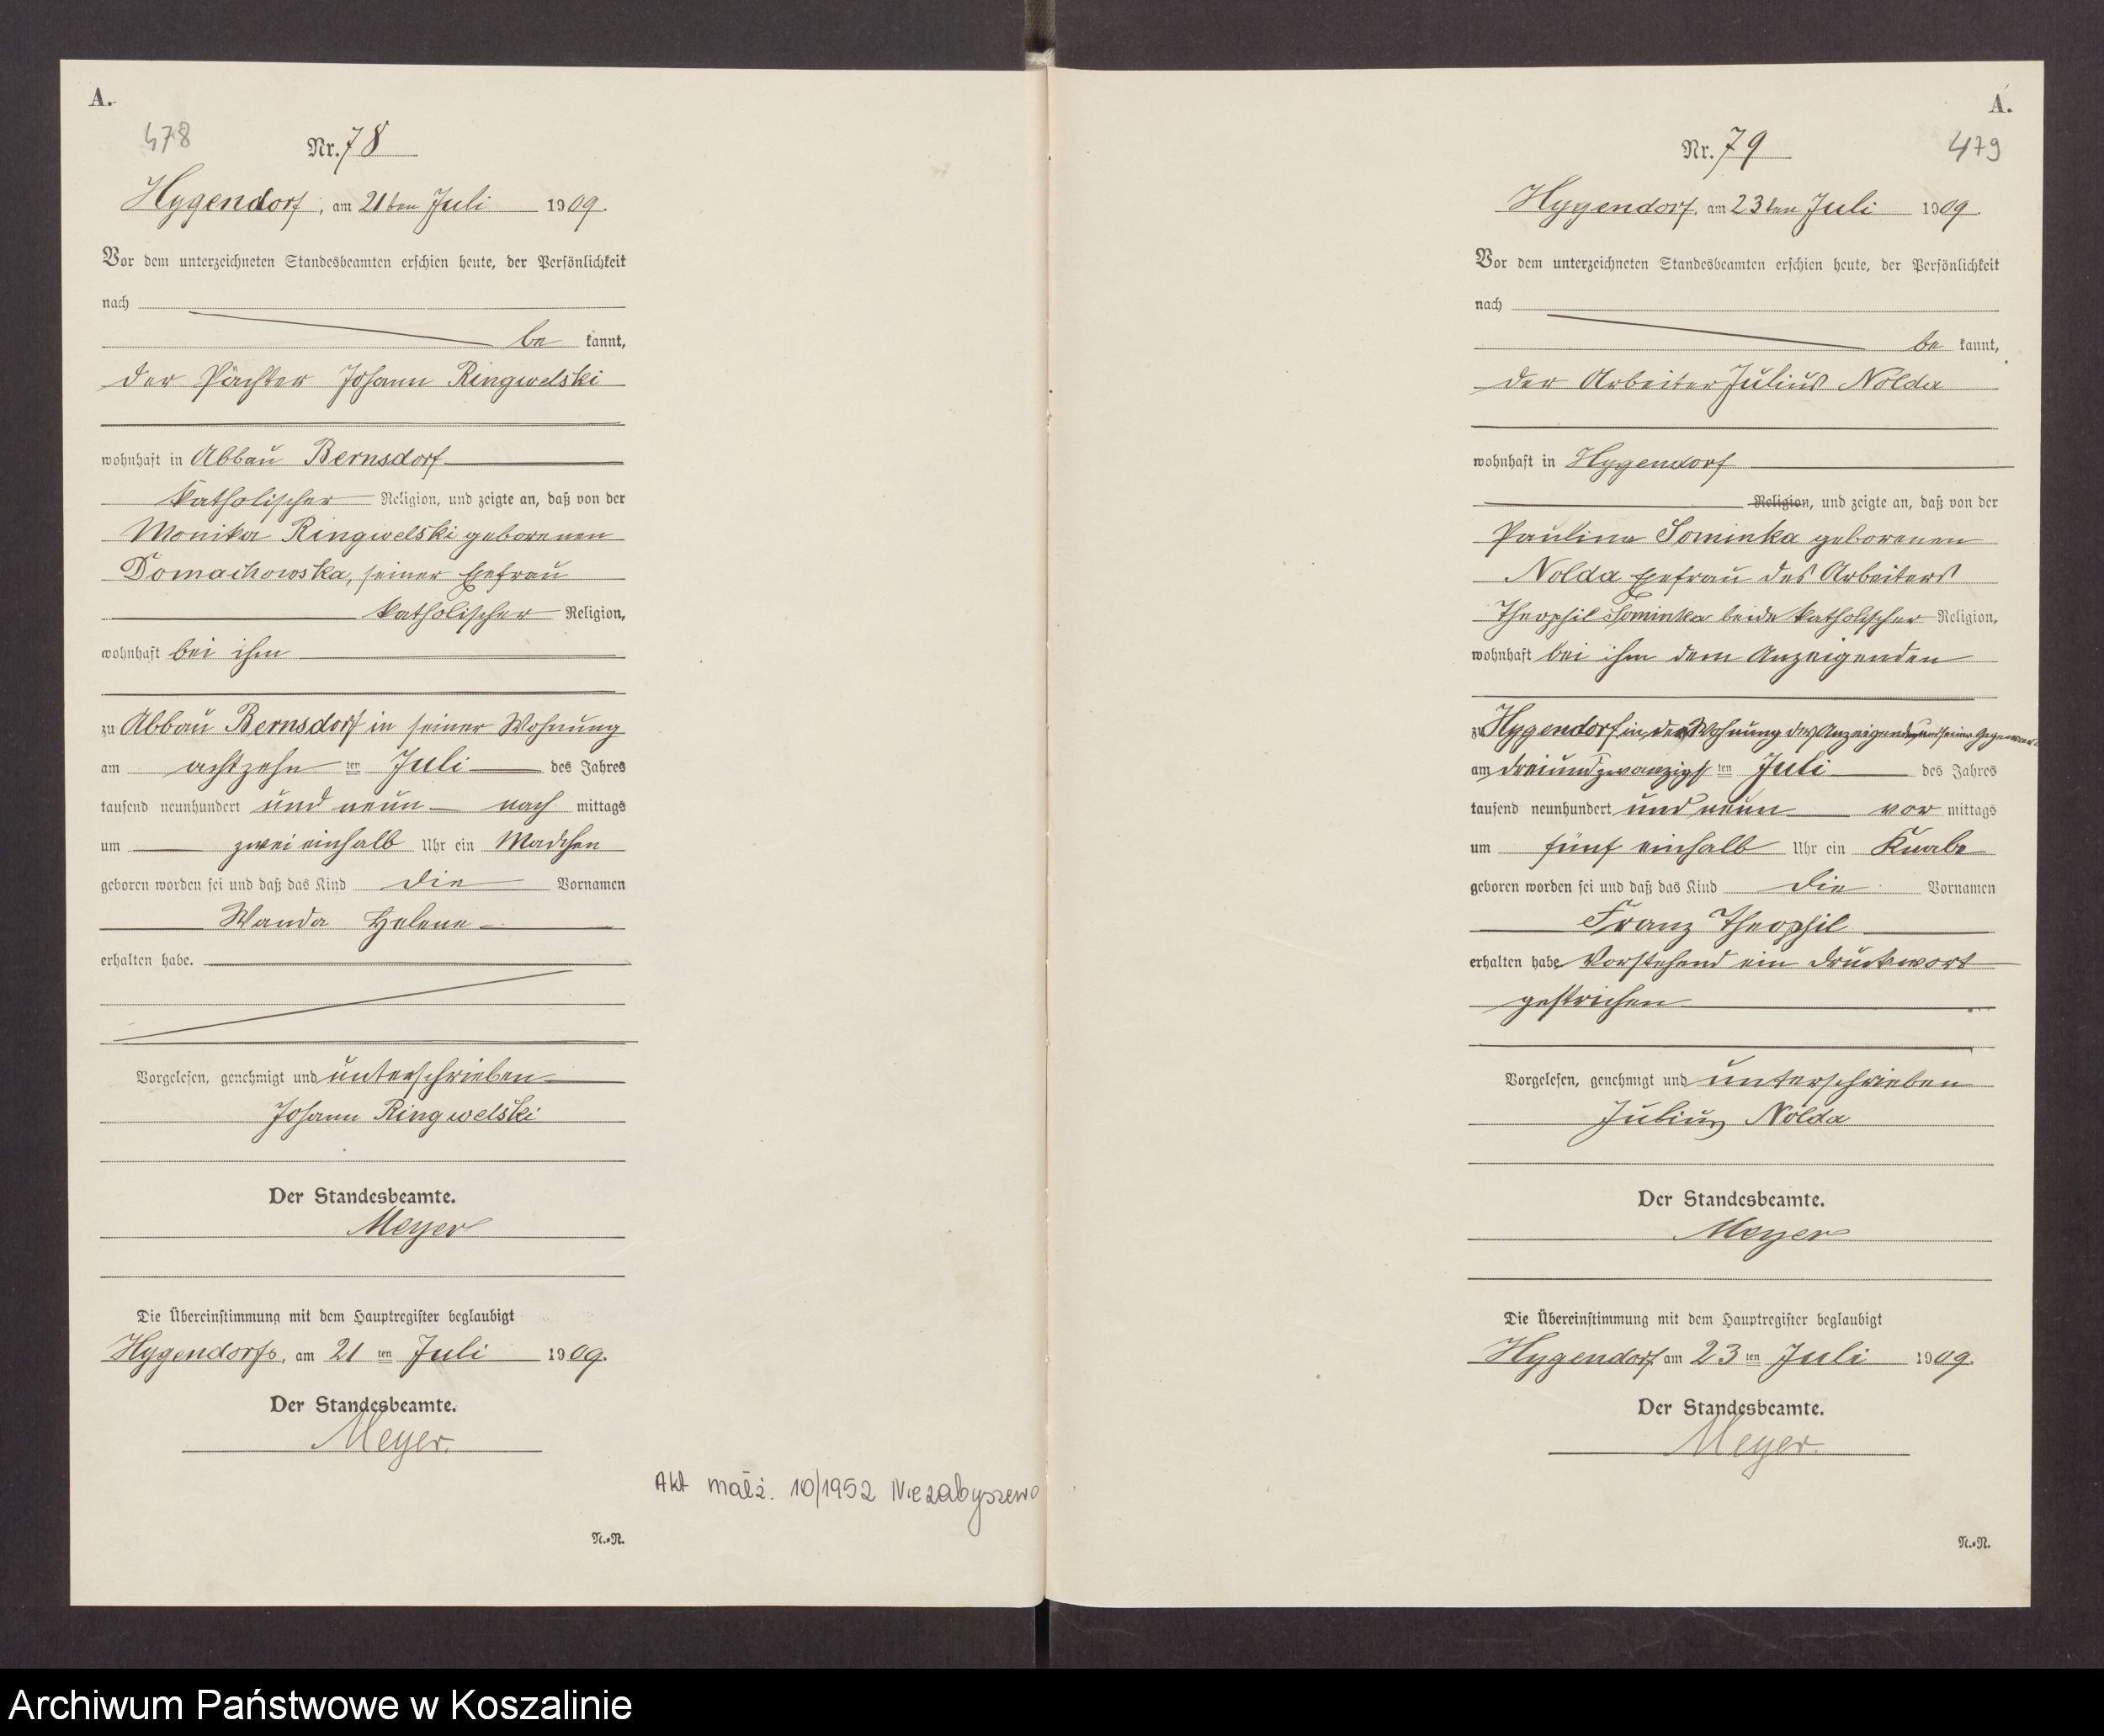 A.
478
Nr. 78
Hygendorf, am 21ten Juli 1909.
Vor dem unterzeichneten Standesbeamten erschien heute, der Persönlichkeit
nach
be kannt,
der Pächter Johann Ringwelski
wohnhaft in Abbau Bernsdorf
katholischer Religion, und zeigte an, daß von der
Monika Ringwelski geborenen
Domachowska, seiner Ehefrau
katholischer Religion,
wohnhaft bei ihm
zu Abbau Bernsdorf in seiner Wohnung
am achtzehn ten Juli des Jahres
tausend neunhundert und neun nach mittags
um zwei einhalb Uhr ein Mädchen
geboren worden sei und daß das Kind die Vornamen
Wanda Helene
erhalten habe.
Vorgelesen, genehmigt und unterschrieben
Johann Ringwelski
Der Standesbeamte.
Meyer
Die Übereinstimmung mit dem Hauptregister beglaubigt
Hygendorf, am 21 ten Juli 1909.
Der Standesbeamte.
Meyer.
Akt małż. 10/1952 Niezabyszewo
N.-N.
A.
Nr. 79
479
Hygendorf, am 23ten Juli 1909.
Vor dem unterzeichneten Standesbeamten erschien heute, der Persönlichkeit
nach
be kannt,
der Arbeiter Julius Nolda
wohnhaft in Hygendorf
Religion, und zeigte an, daß von der
Pauline Sominka geborenen
Nolda Ehefrau des Arbeiters
Theophil Sominka beide katholischer Religion,
wohnhaft bei ihm dem Anzeigenden
zu Hygendorf in der Wohnung des Anzeigenden und seiner Gegenwart
am dreiundzwanzigs ten Juli des Jahres
tausend neunhundert und neun vor mittags
um fünf einhalb Uhr ein Knabe
geboren worden sei und daß das Kind die Vornamen
Franz Theophil
erhalten habe. Vorstehend ein Druckwort
gestrichen
Vorgelesen, genehmigt und unterschrieben
Julius Nolda
Der Standesbeamte.
Meyer
Die Übereinstimmung mit dem Hauptregister beglaubigt
Hygendorf am 23 ten Juli 1909.
Der Standesbeamte.
Meyer.
N.-N.
Archiwum Państwowe w Koszalinie